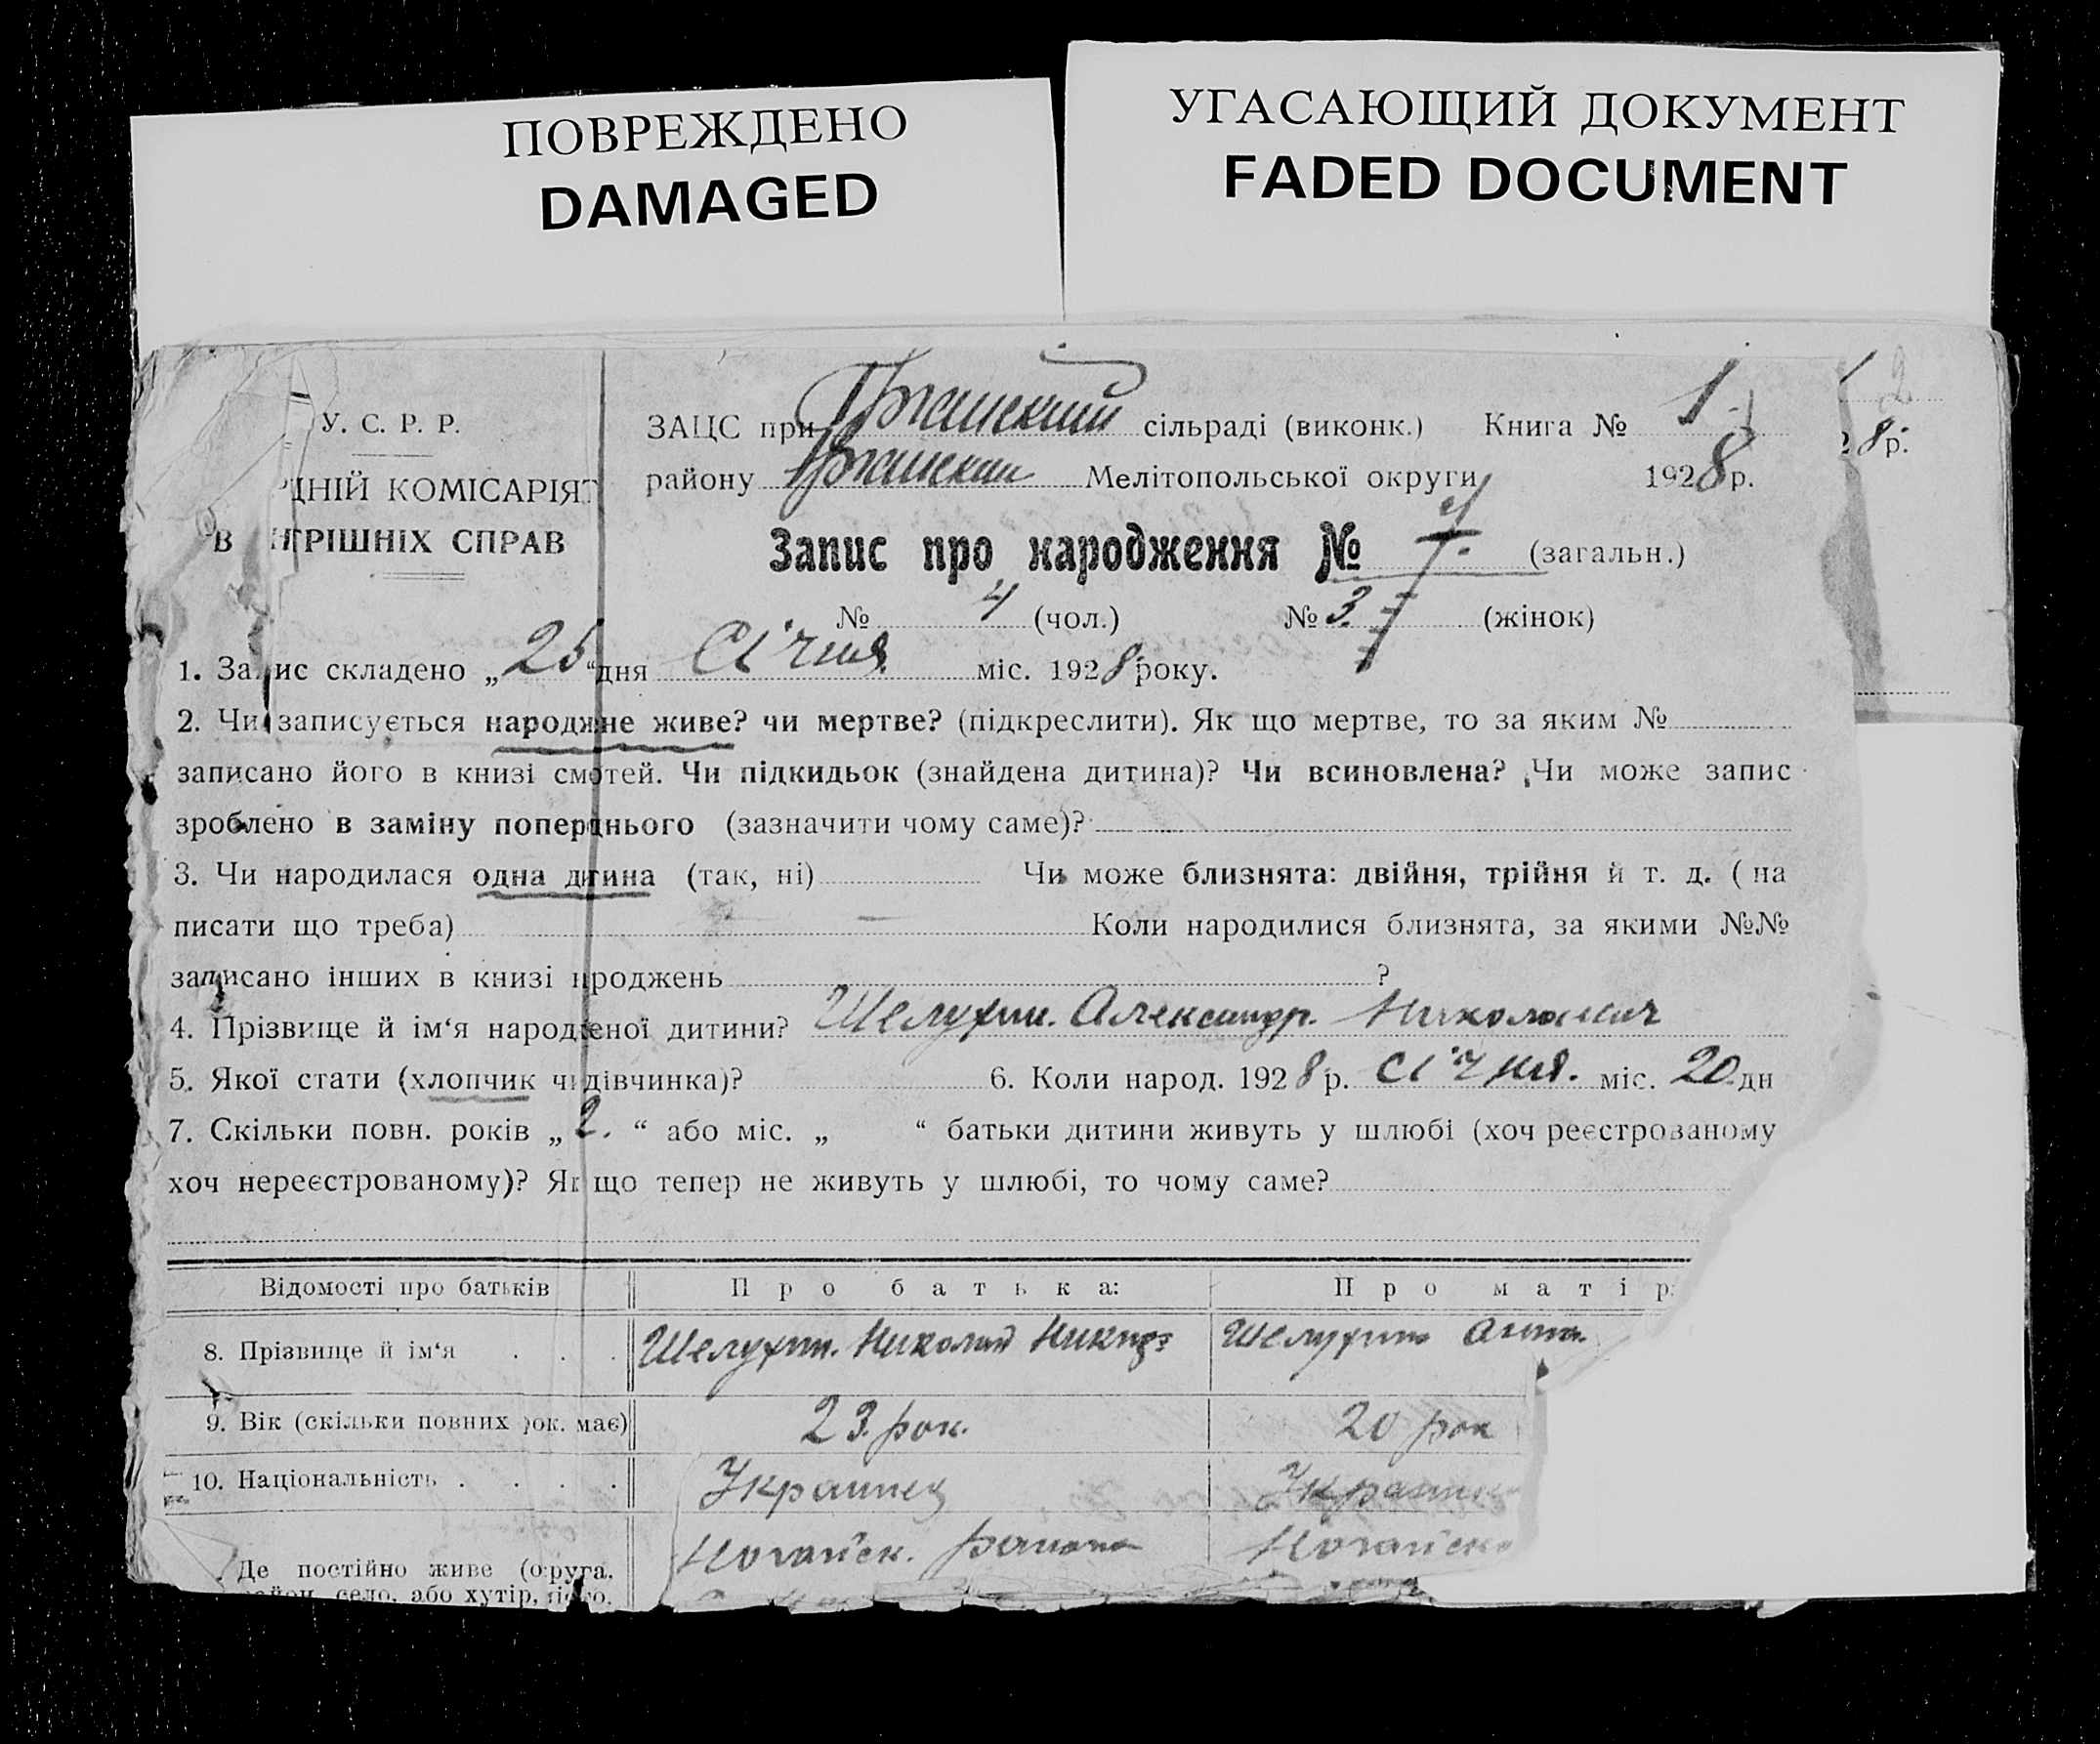 ПОВРЕЖДЕНО
DAMAGED
УГАСАЮЩИЙ ДОКУМЕНТ
FADED DOCUMENT
У. С. Р. Р.
ДНІЙ КОМІСАРІЯТ
В ТРІШНІХ СПРАВ
ЗАЦС при сільраді (виконк.) Книга № 1
району Мелітопольської округи 1928 р.
8р.
2
Запис про народження № (загальн.)
№ 4 (чол.) № 3 (жінок)
1. Запис складено „25“ дня Січня міс. 1928 року.
2. Чи записується народжне живе? чи мертве? (підкреслити). Як що мертве, то за яким №
записано його в книзі смотей. Чи підкидьок (знайдена дитина)? Чи всиновлена? Чи може запис
зроблено в заміну попереднього (зазначити чому саме)?
3. Чи народилася одна дитина (так, ні) Чи може близнята: двійня, трійня й т. д. ( на
писати що треба) Коли народилися близнята, за якими №№
записано інших в книзі нроджень ?
4. Прізвище й ім‘я народженої дитини? Шелухин. Александр. Николаевич
5. Якої стати (хлопчик чи дівчинка)? 6. Коли народ. 1928 р. січня. міс. 20 дн
7. Скільки повн. років „2.“ або міс. „ “ батьки дитини живуть у шлюбі (хоч реєстрованому
хоч нереєстрованому)? Як що тепер не живуть у шлюбі, то чому саме?
Відомості про батьків Про батька: Про матір:
8. Прізвище й ім‘я . . . Шелухин. Николай Шелухина Анна.
9. Вік (скільки повних рок. має) 23 рок. 20 рок
10. Національність . . . . Украинец Украин
Де постійно живе (округа, Ногайск. района Ногайск
район, село, або хутір,